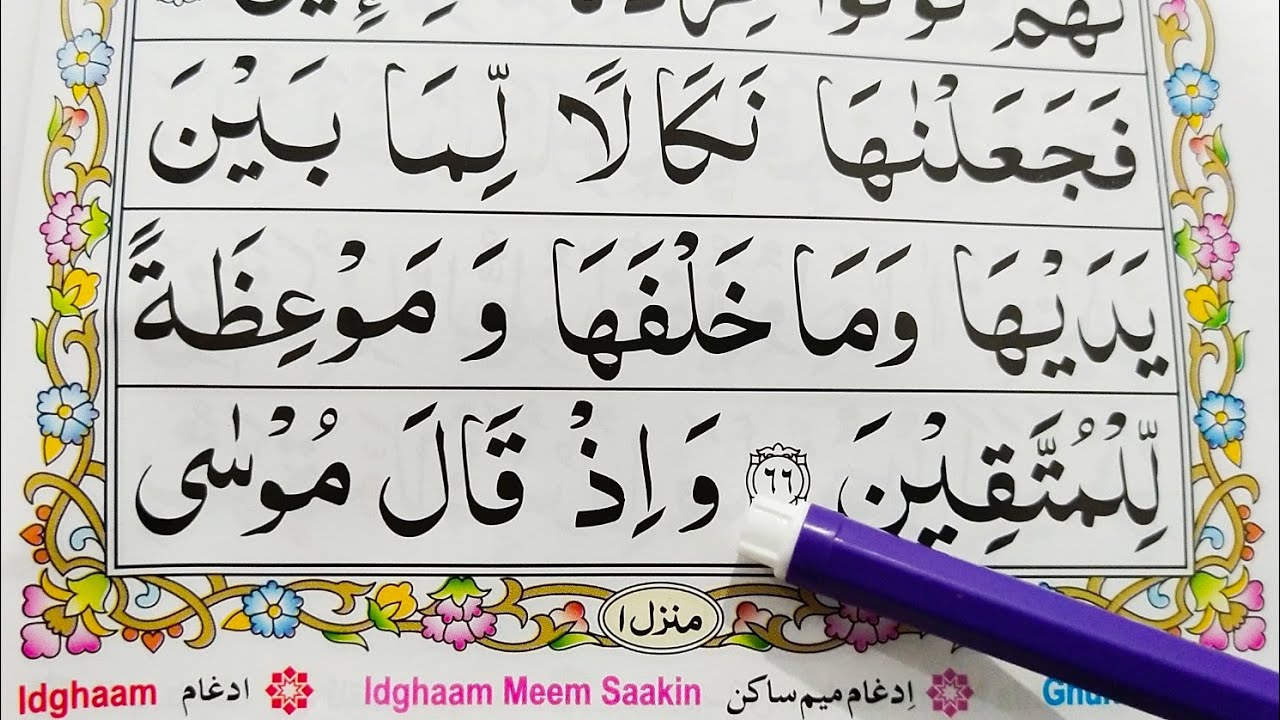 فَجَعَلْنٰهَا نَكَالًا لِّمَا بَيْنَ
يَدَيْهَا وَمَا خَلْفَهَا وَ مَوْعِظَةً
لِّلْمُتَّقِيْنَ ۶۶ وَاِذْ قَالَ مُوْسٰى
منزل ۱
Idghaam ادغام Idghaam Meem Saakin اِدغام میم ساکن